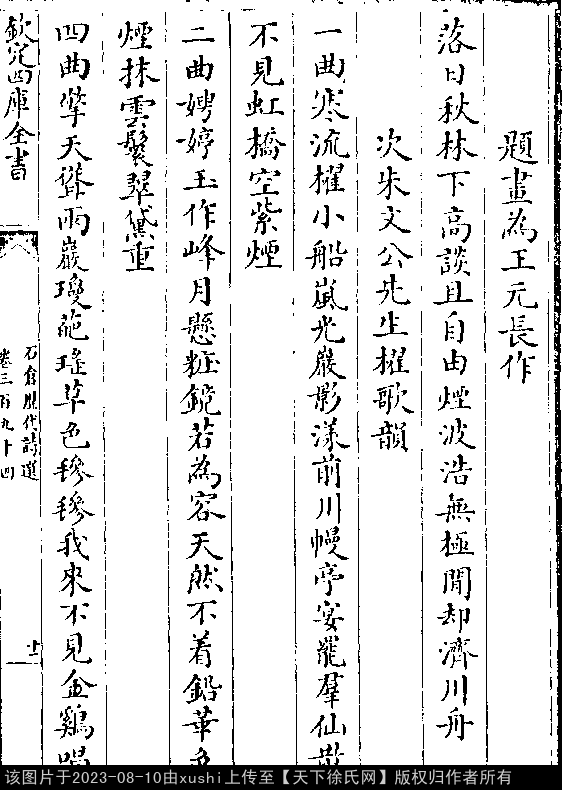 題畫為王元長作
落日秋林下高談且自由煙波浩無極閒却濟川舟
次朱文公先生櫂歌韻
一曲寒流櫂小船嵐光巖影漾前川幔亭宴罷羣仙散
不見虹橋空紫煙
二曲娉婷玉作峰月懸粧鏡若為容天然不着鉛華色
煙抹雲鬟翠黛重
四曲擎天聳兩巖瓊葩瑤草色毿毿我來不見金鷄唱
欽定四庫全書
石倉歷代詩選
卷三百九十四
十二
该图片于2023-08-10由xushi上传至【天下徐氏网】版权归作者所有